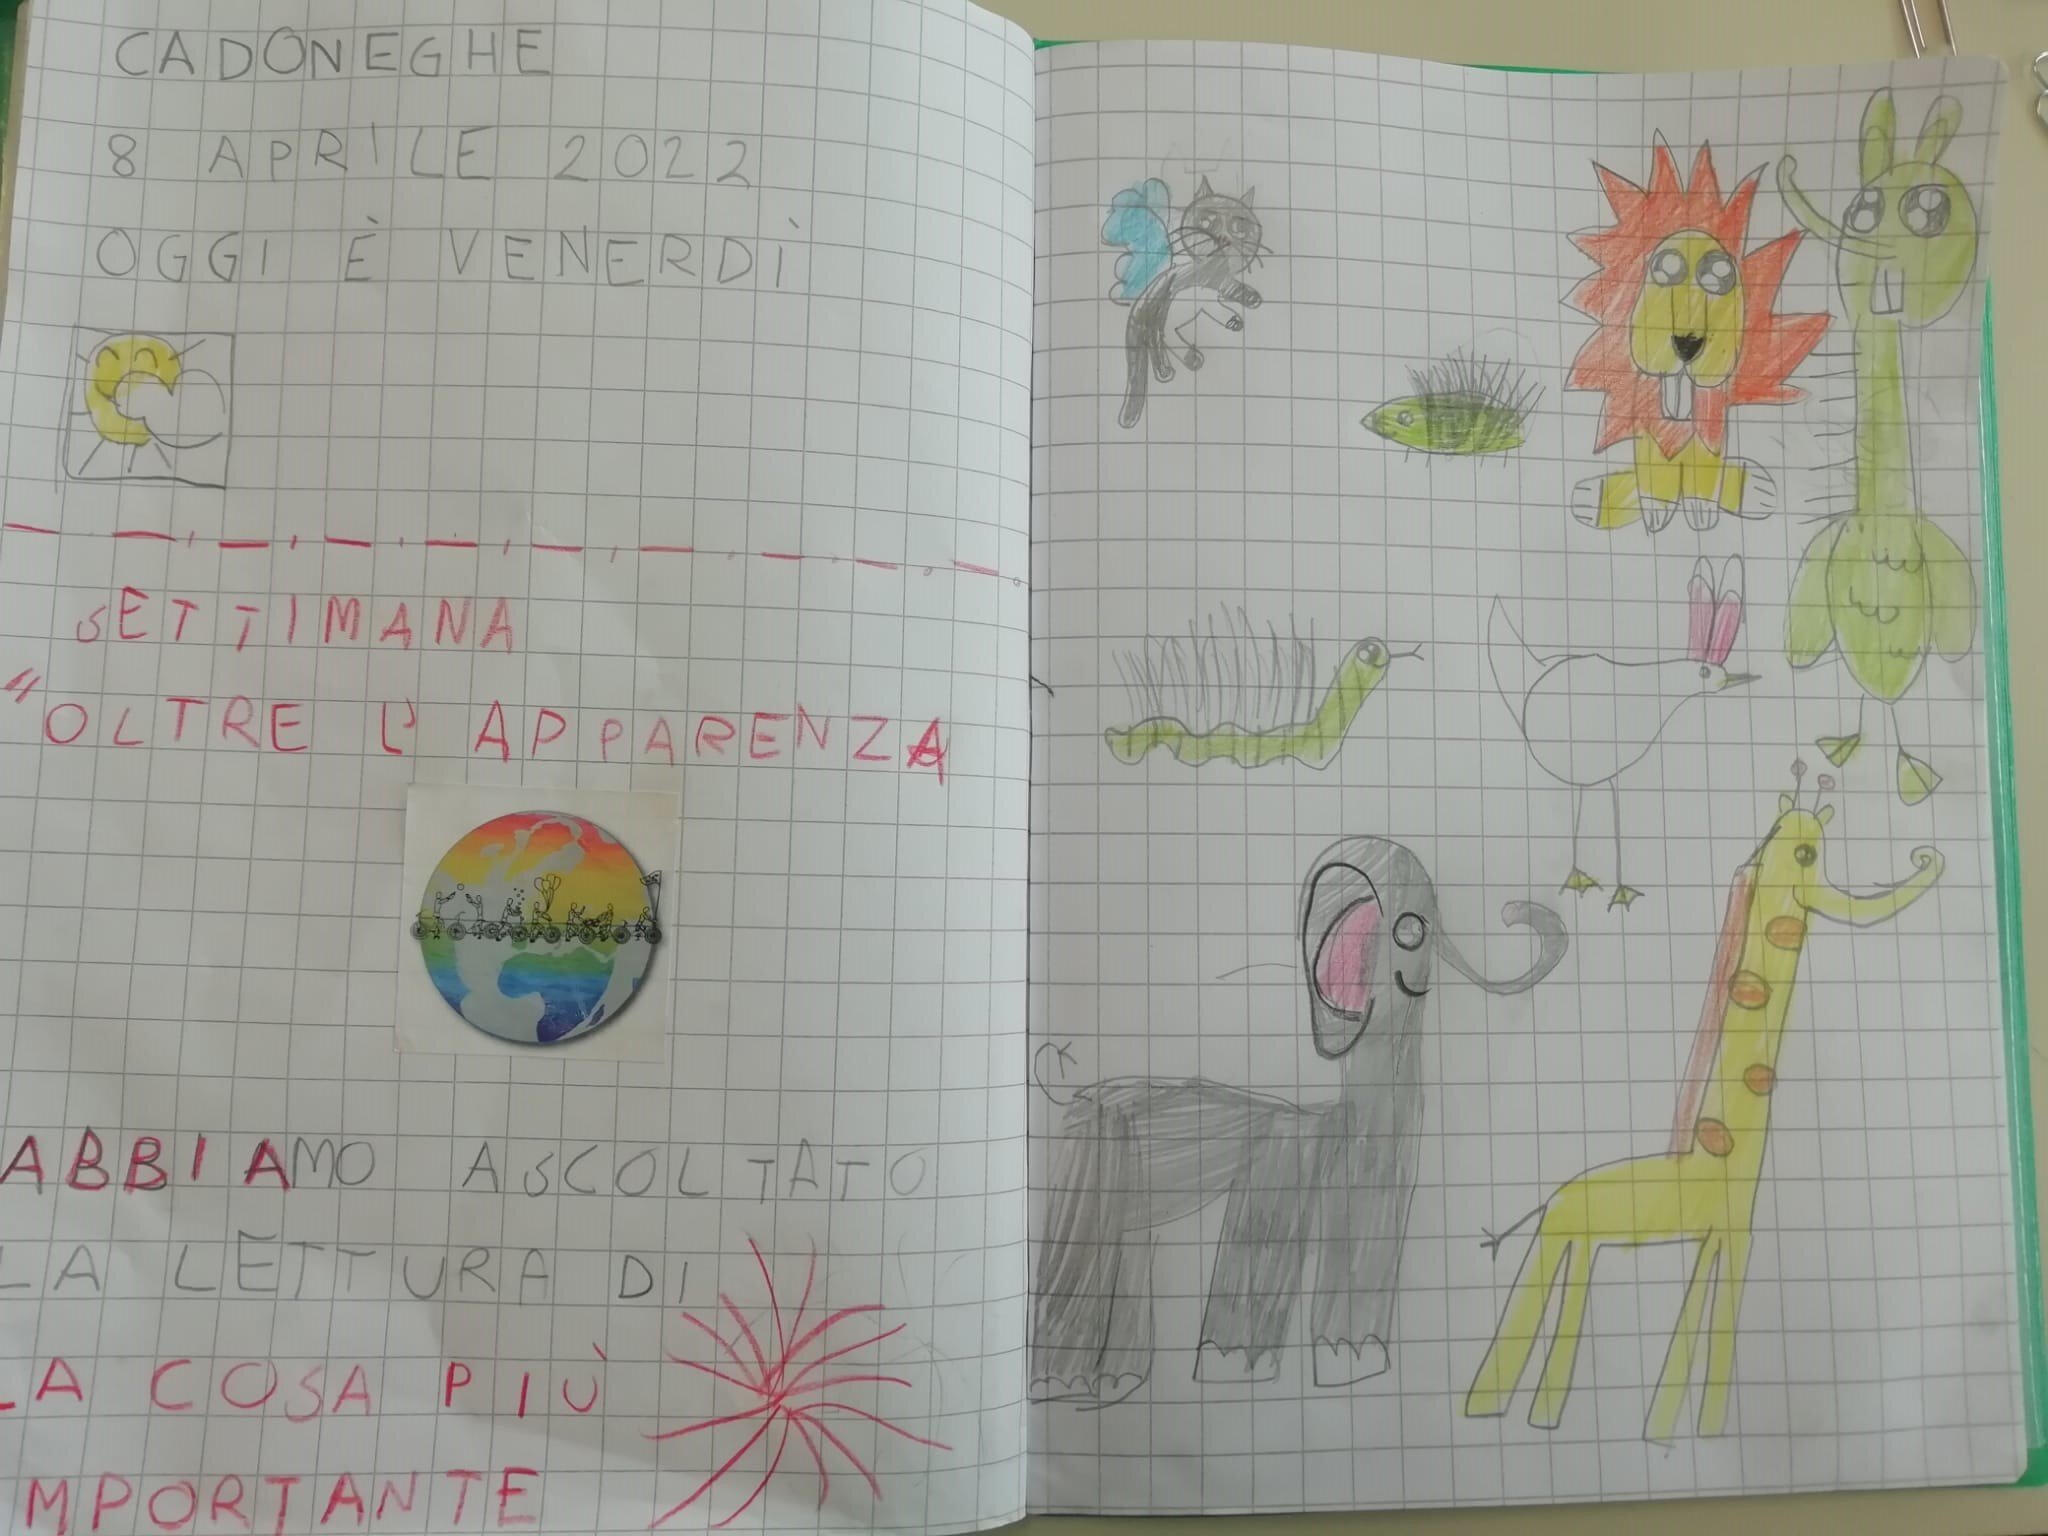 CADONEGHE
8 APRILE 2022
OGGI È VENERDÌ
SETTIMANA
"OLTRE L'APPARENZA
ABBIAMO ASCOLTATO
LA LETTURA DI
LA COSA PIÙ
IMPORTANTE